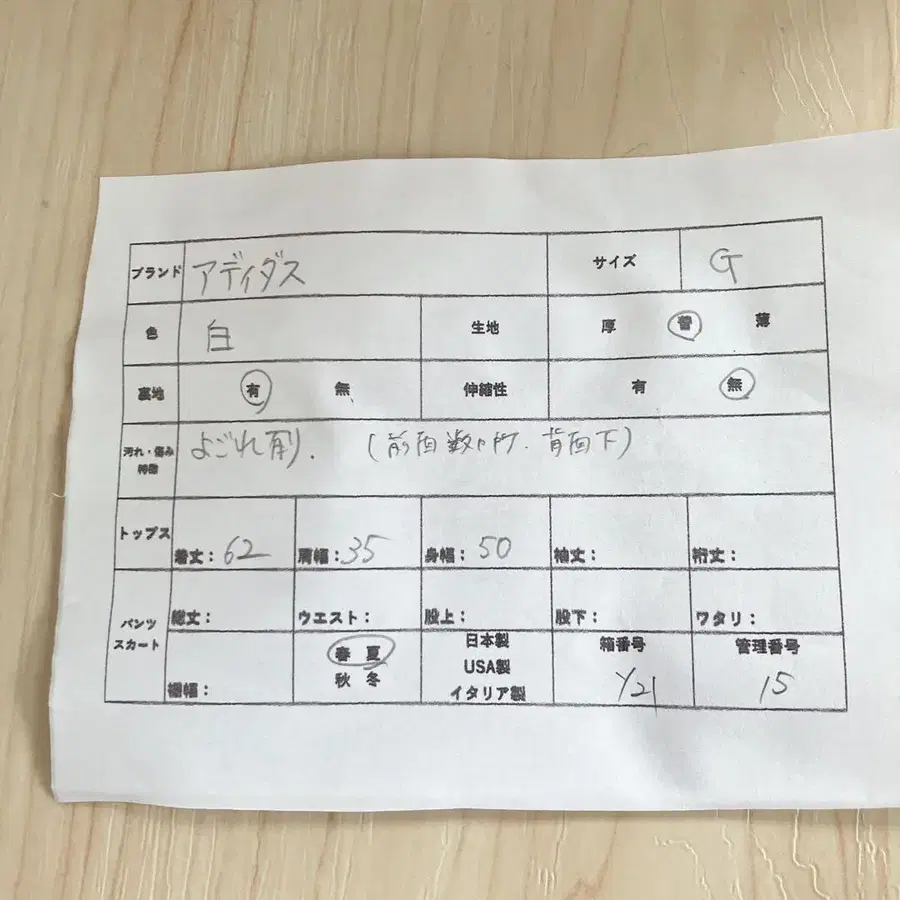 ブランド アディダス サイズ G
色 白 生地 厚 普 薄
裏地 有 無 伸縮性 有 無
汚れ・傷み
特徴
よごれ有り. (前面数ヶ所. 背面下)
トップス 着丈:62 肩幅:35 身幅:50 袖丈: 裄丈:
パンツ
スカート
総丈: ウエスト: 股上: 股下: ワタリ:
裾幅:
春 夏
秋 冬
日本製
USA製
イタリア製
箱番号
Y21
管理番号
15